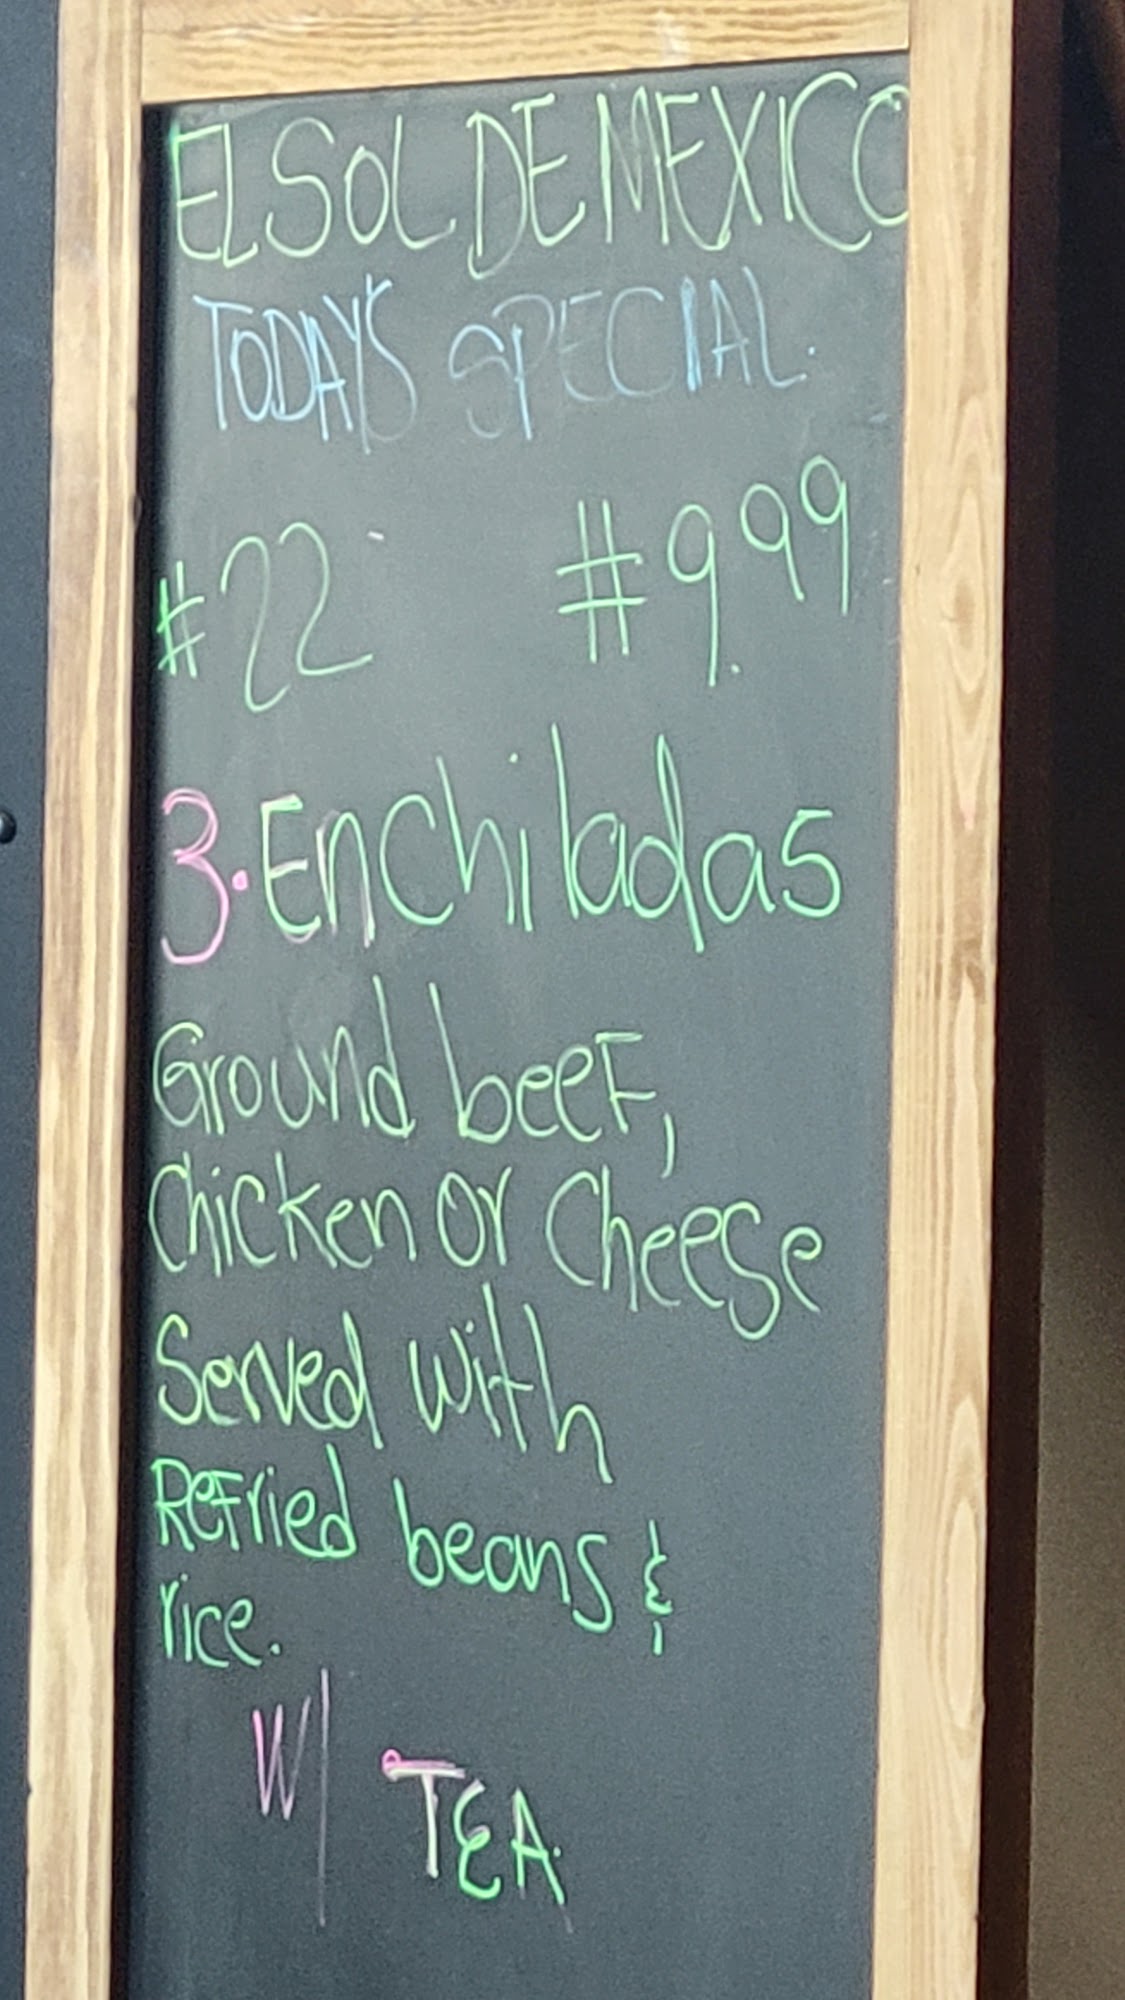 EL SOL DE MEXICO
TODAY'S SPECIAL.
#22 #9.99
3. Enchiladas
Ground beef,
Chicken or Cheese
Served with
Refried beans &
rice.
W/ TEA.